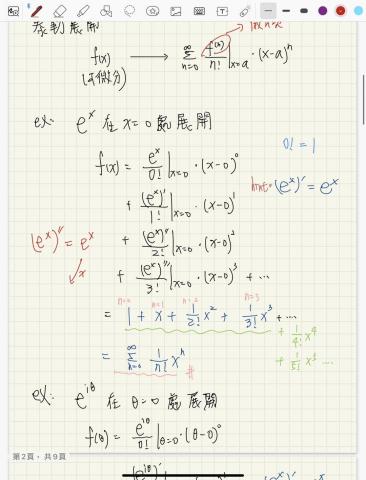 泰勒展開
微n次
f(x) ⟶ ∑_{n=0}^{∞} f^{(n)}/n! |_{x=a} · (x-a)^n
(可微分)
ex: e^x 在 x=0 處展開
0! = 1
f(x) = e^x/0! |_{x=0} · (x-0)^0
hint: (e^x)' = e^x
+ (e^x)'/1! |_{x=0} · (x-0)^1
(e^x)'' = e^x
+ (e^x)''/2! |_{x=0} · (x-0)^2
x
+ (e^x)'''/3! |_{x=0} · (x-0)^3 + ...
n=0 n=1 n=2 n=3
= 1 + x + 1/2! x^2 + 1/3! x^3 + ...
+ 1/4! x^4
= ∑_{n=0}^{∞} 1/n! x^n #
+ 1/5! x^5 ...
ex: e^{iθ} 在 θ=0 處展開
f(θ) = e^{iθ}/0! |_{θ=0} · (θ-0)^0
第2頁，共9頁